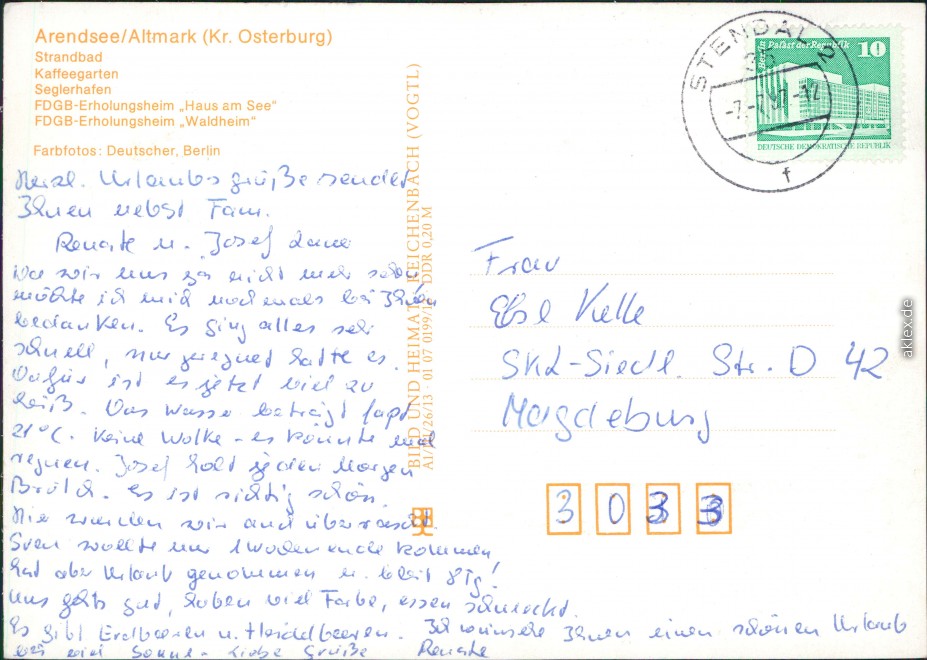 Arendsee/Altmark (Kr. Osterburg)
Strandbad
Kaffeegarten
Seglerhafen
FDGB-Erholungsheim „Haus am See“
FDGB-Erholungsheim „Waldheim“
Farbfotos: Deutscher, Berlin
Herzl. Urlaubsgrüße sendet
Ihnen nebst Fam.
Renate u. Josef
Da wir uns gar nicht mehr sahen
möchte ich mich nochmals bei Ihnen
bedanken. Es ging alles sehr
schnell, nur geregnet hatte es.
Dafür ist es jetzt viel zu
heiß. Das Wasser beträgt fast
21°C. Keine Wolke - es könnte mal
regnen. Josef holt jeden Morgen
Brötch. Es ist richtig schön.
Hier wurden wir auch überrascht.
Sven wollte nur 1 Wochenende kommen
hat aber Urlaub genommen u. bleibt 8 Tg!
Uns gehts gut, haben viel Farbe, essen schmeckt.
Es gibt Erdbeeren u. Heidelbeeren. Ich wünsche Ihnen einen schönen Urlaub
bei viel Sonne - Liebe Grüße Renate
BILD UND HEIMAT REICHENBACH (VOGTL)
A1/ 26/13 · 01 07 0199/1 DDR 0,20 M
STENDAL 2
35
-7.-7.87-12
f
Berlin Palast der Republik 10
DEUTSCHE DEMOKRATISCHE REPUBLIK
Frau
Kelle
SKL-Siedl. Str. D 42
Magdeburg
3 0 3 3
aklex.de